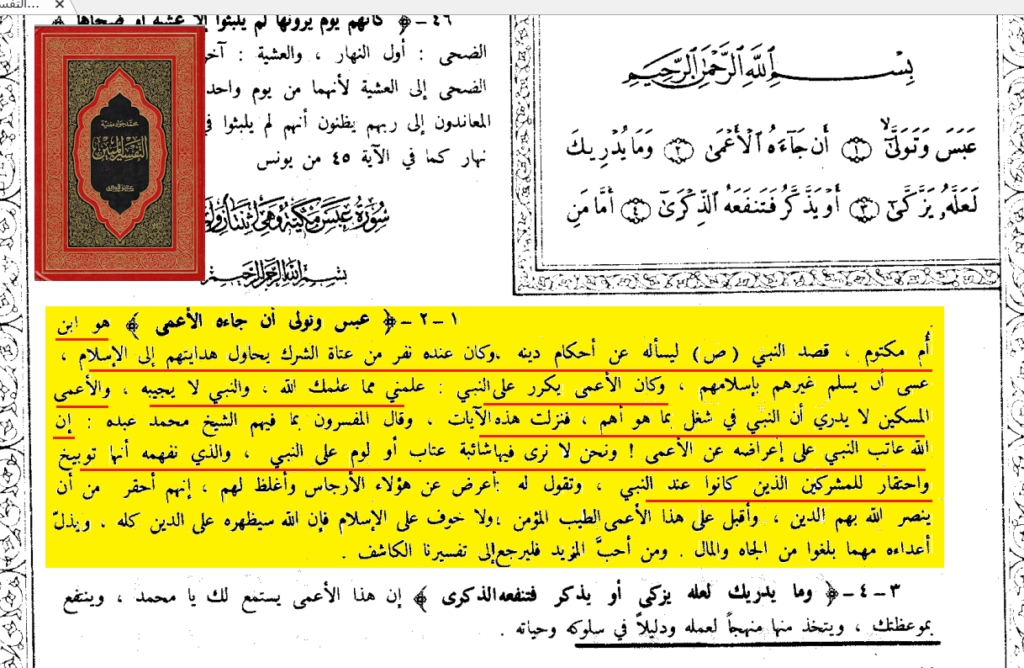 التفس...
٤٦ - ﴿ كأنهم يوم يرونها لم يلبثوا إلا عشية أو ضحاها ﴾
الضحى : أول النهار ، والعشية : آخر
الضحى إلى العشية لأنهما من يوم واحد
المعاندون إلى ربهم يظنون أنهم لم يلبثوا في
نهار كما في الآية ٤٥ من يونس
سُورَة عَبَسَ مَكيّة وَهِيَ اثنتان
بسم الله الرحمن الرحيم
محمد جواد مغنية
التفسير المبين
بِسْمِ ٱللَّهِ ٱلرَّحْمَٰنِ ٱلرَّحِيمِ
عَبَسَ وَتَوَلَّىٰٓ ﴿١﴾ أَن جَآءَهُ ٱلْأَعْمَىٰ ﴿٢﴾ وَمَا يُدْرِيكَ
لَعَلَّهُۥ يَزَّكَّىٰٓ ﴿٣﴾ أَوْ يَذَّكَّرُ فَتَنفَعَهُ ٱلذِّكْرَىٰٓ ﴿٤﴾ أَمَّا مَنِ
١ - ٢ - ﴿ عبس وتولى أن جاءه الأعمى ﴾ هو ابن
أم مكتوم ، قصد النبي (ص) ليسأله عن أحكام دينه . وكان عنده نفر من عتاة الشرك يحاول هدايتهم إلى الإسلام ،
عسى أن يسلم غيرهم بإسلامهم ، وكان الأعمى يكرر على النبي : علمني مما علمك الله ، والنبي لا يجيبه ، والأعمى
المسكين لا يدري أن النبي في شغل بما هو أهم ، فنزلت هذه الآيات ، وقال المفسرون بما فيهم الشيخ محمد عبده : إن
الله عاتب النبي على إعراضه عن الأعمى ! ونحن لا نرى فيها شائبة عتاب أو لوم على النبي ، والذي نفهمه أنها توبيخ
واحتقار للمشركين الذين كانوا عند النبي ، وتقول له : أعرض عن هؤلاء الأرجاس وأغلظ لهم ، إنهم أحقر من أن
ينصر الله بهم الدين ، وأقبل على هذا الأعمى الطيب المؤمن ، ولا خوف على الإسلام فإن الله سيظهره على الدين كله . ويذلّ
أعداءه مهما بلغوا من الجاه والمال . ومن أحبَّ المزيد فليرجع إلى تفسيرنا الكاشف .
٣ - ٤ - ﴿ وما يدريك لعله يزكى أو يذكر فتنفعه الذكرى ﴾ إن هذا الأعمى يستمع لك يا محمد ، وينتفع
بموعظتك ، ويتخذ منها منهجاً لعمله ودليلاً في سلوكه وحياته .